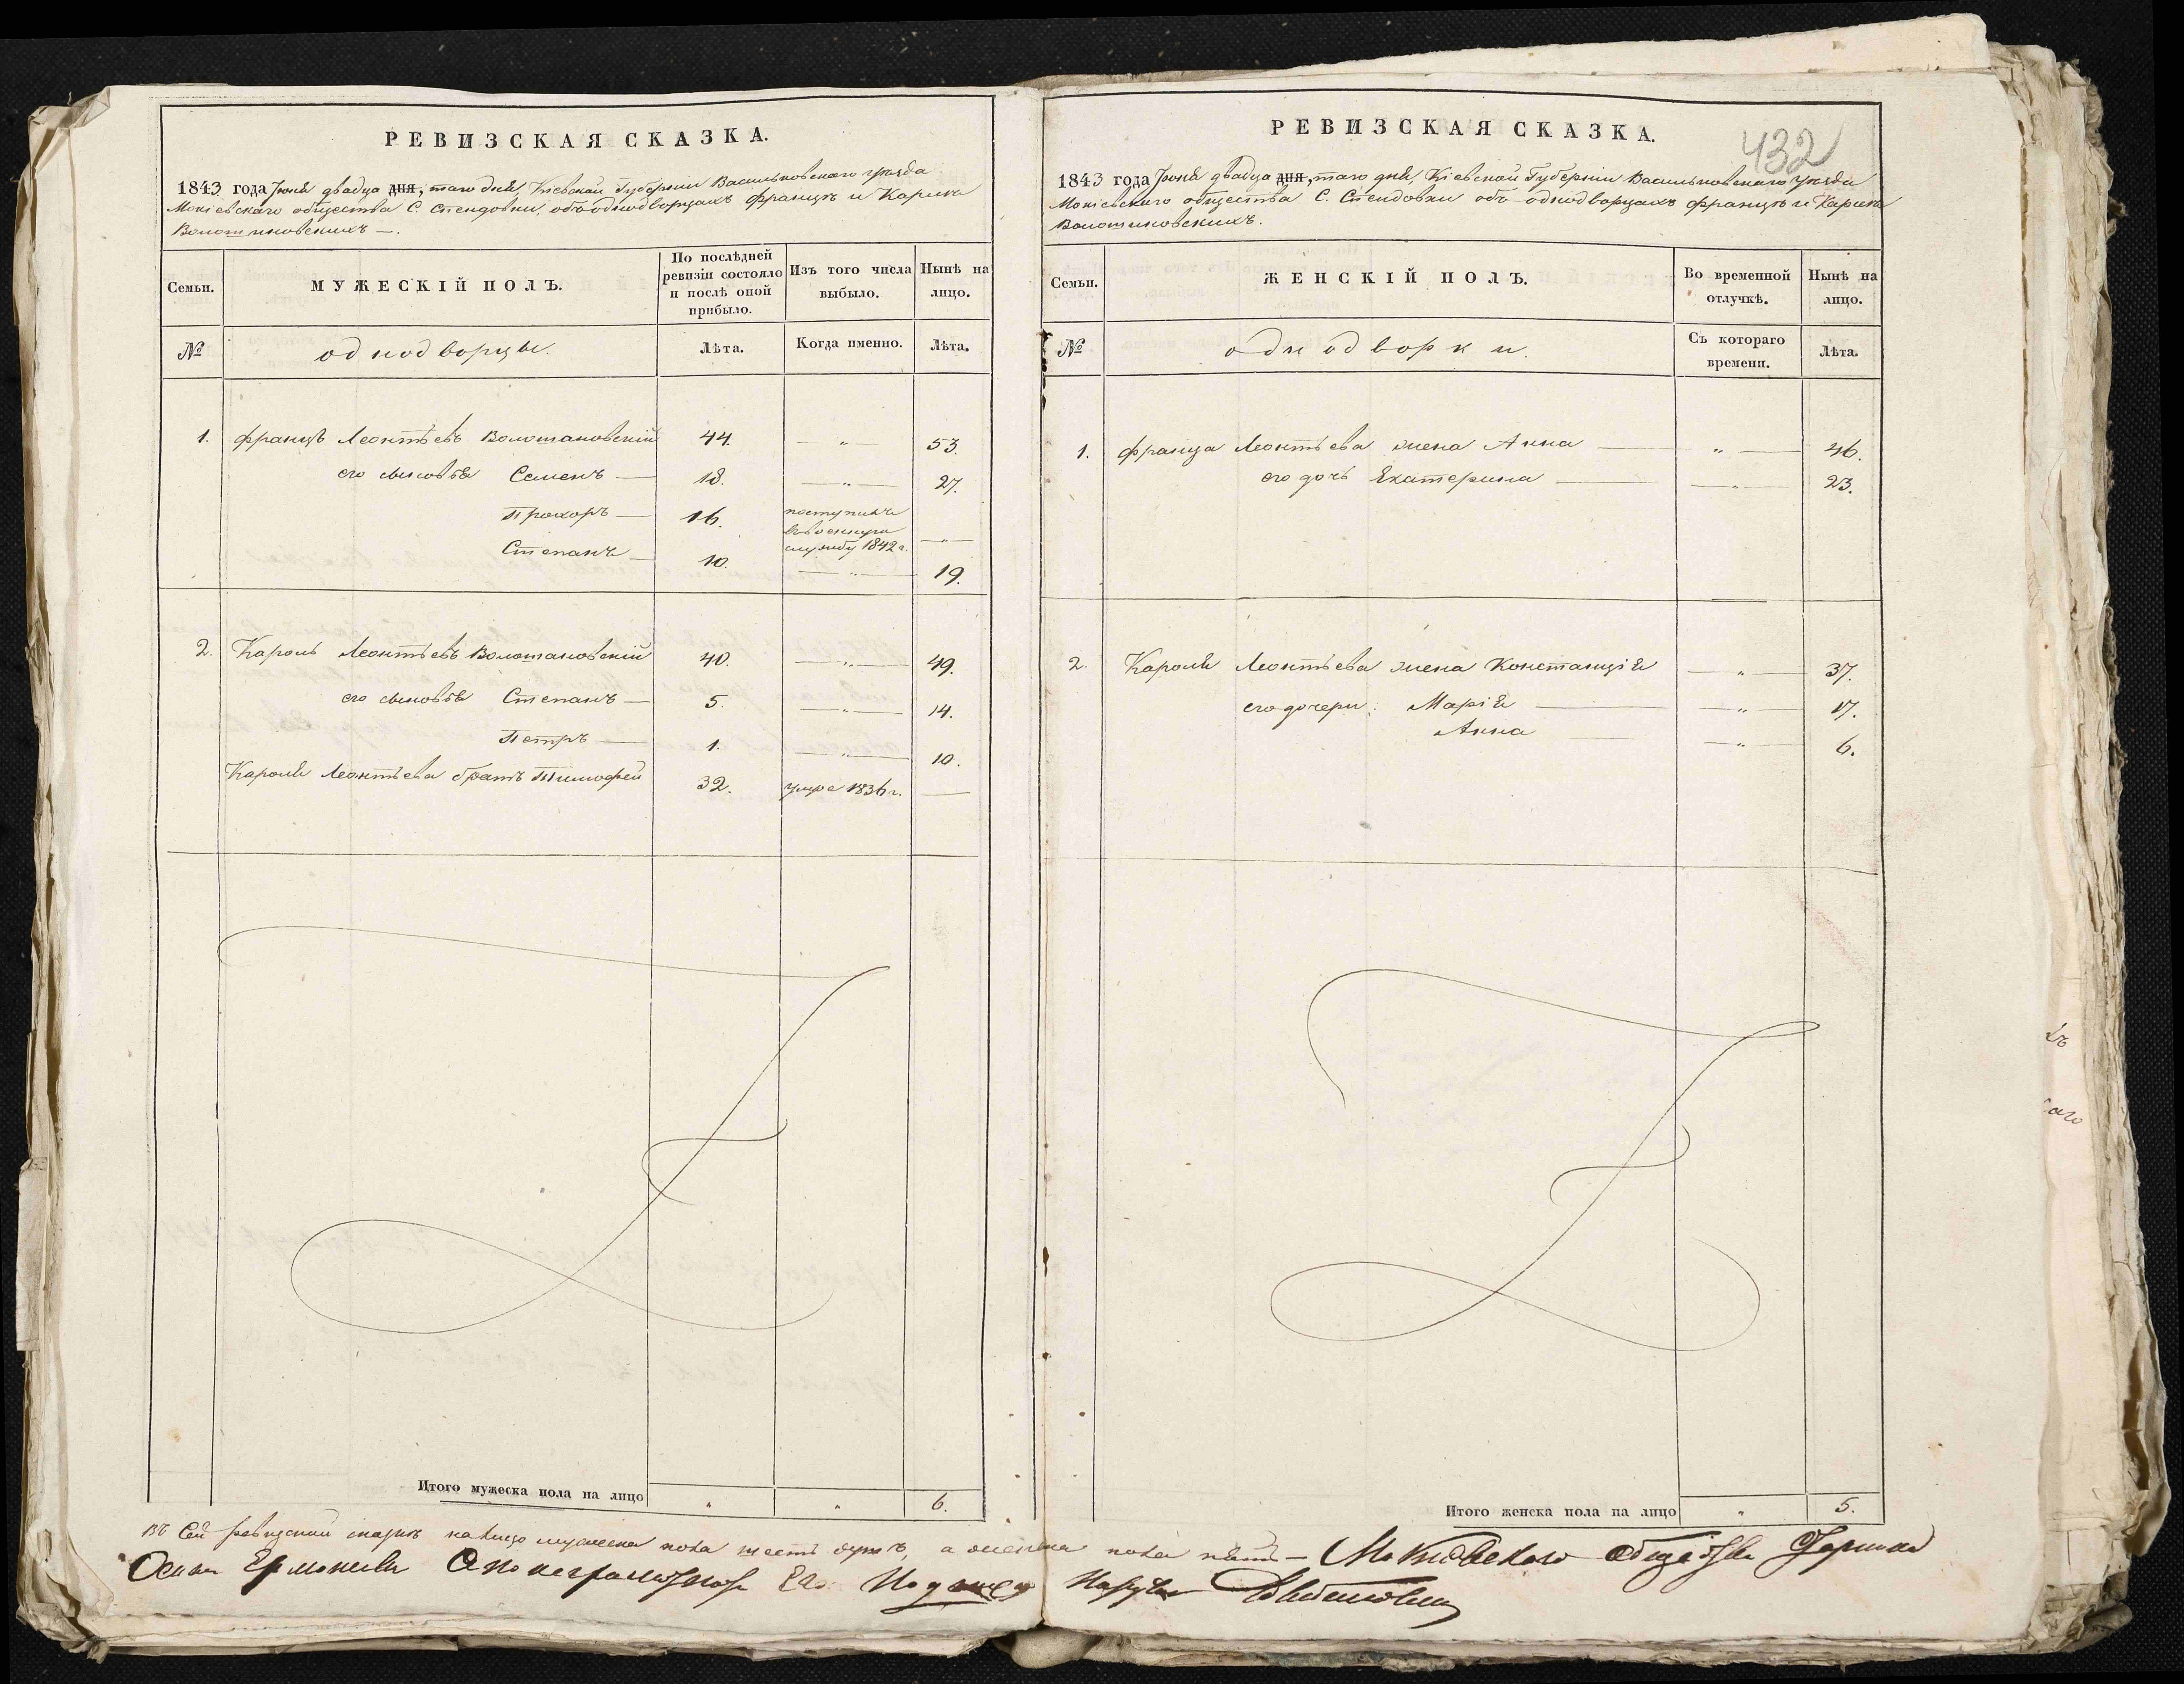 РЕВИЗСКАЯ СКАЗКА.
1843 года Іюня двадца дня, таго дня, Кіевской Губерніи Васильковскаго уезда
Мокіевскаго общества С. Стендовки, объ однодворцахъ Францѣ и
РЕВИЗСКАЯ СКАЗКА.
432
1843 года Іюня двадца дня, таго дня, Кіевской Губерніи Васильковскаго уезда
Мокіевскаго общества С. Стендовки объ однодворцахъ Францѣ и
Семьи.
МУЖЕСКІЙ ПОЛЪ.
По послѣдней
ревизіи состояло
и послѣ оной
прибыло.
Изъ того числа
выбыло.
Нынѣ на
лицо.
№
однодворцы.
Лѣта.
Когда именно.
Лѣта.
1. Францъ Леонтьевъ Волошановскій 44. — „ — 53.
его сыновья Семенъ — 18. — „ — 27.
Прохоръ — 16. поступилъ
въ военную
службу 1842 г. — „ —
Степанъ — 10. — „ — 19.
2. Кароль Леонтьевъ Волошановскій 40. — „ — 49.
его сыновья Степанъ — 5. — „ — 14.
Петръ — 1. — „ — 10.
Кароля Леонтьева братъ Тимофей 32. умре 1836 г. —
Итого мужеска пола на лицо „ „ 6.
Семьи.
ЖЕНСКІЙ ПОЛЪ.
Во временной
отлучкѣ.
Нынѣ на
лицо.
№
однодворки.
Съ котораго
времени.
Лѣта.
1. Франца Леонтьева жена Анна — „ — 46.
его дочь Екатерина — „ — 23.
2. Кароля Леонтьева жена Констанція — „ — 37.
его дочери: Марія — „ — 17.
Анна — „ — 6.
Итого женска пола на лицо „ 5.
Въ сей ревизской сказкѣ на лицо мужеска пола шесть душъ, а женска пола пять — Мокіевскаго общества